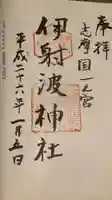 奉拝
志摩国一之宮
伊射波神社
平成二十六年一月五日